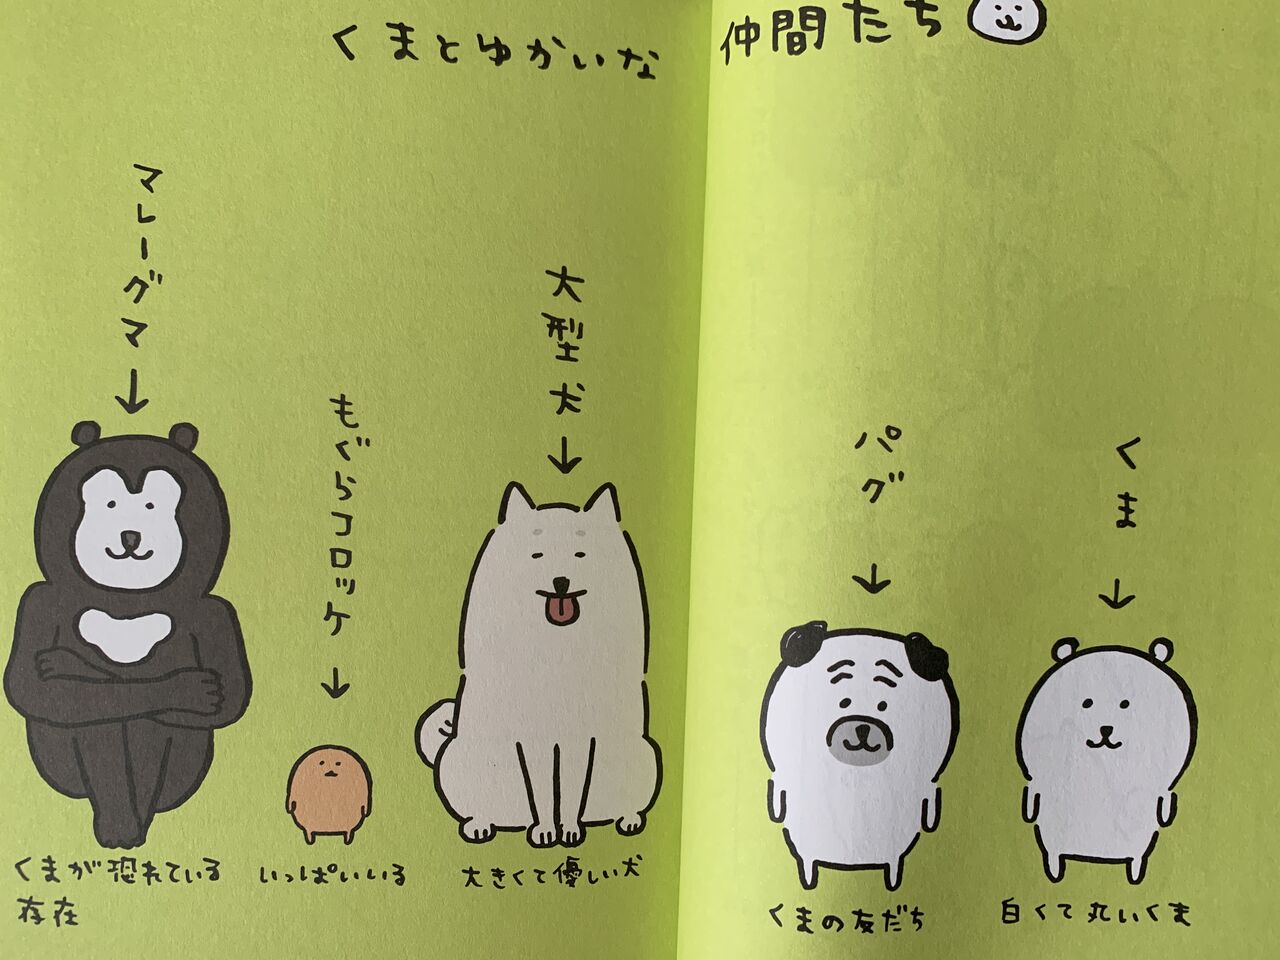 くまとゆかいな仲間たち
くま
白くて丸いくま
パグ
くまの友だち
大型犬
大きくて優しい犬
もぐらコロッケ
いっぱいいる
マレーグマ
くまが恐れている
存在